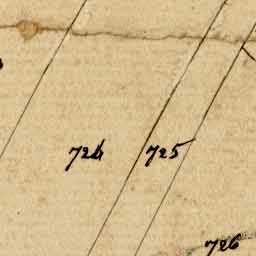 724 725
726